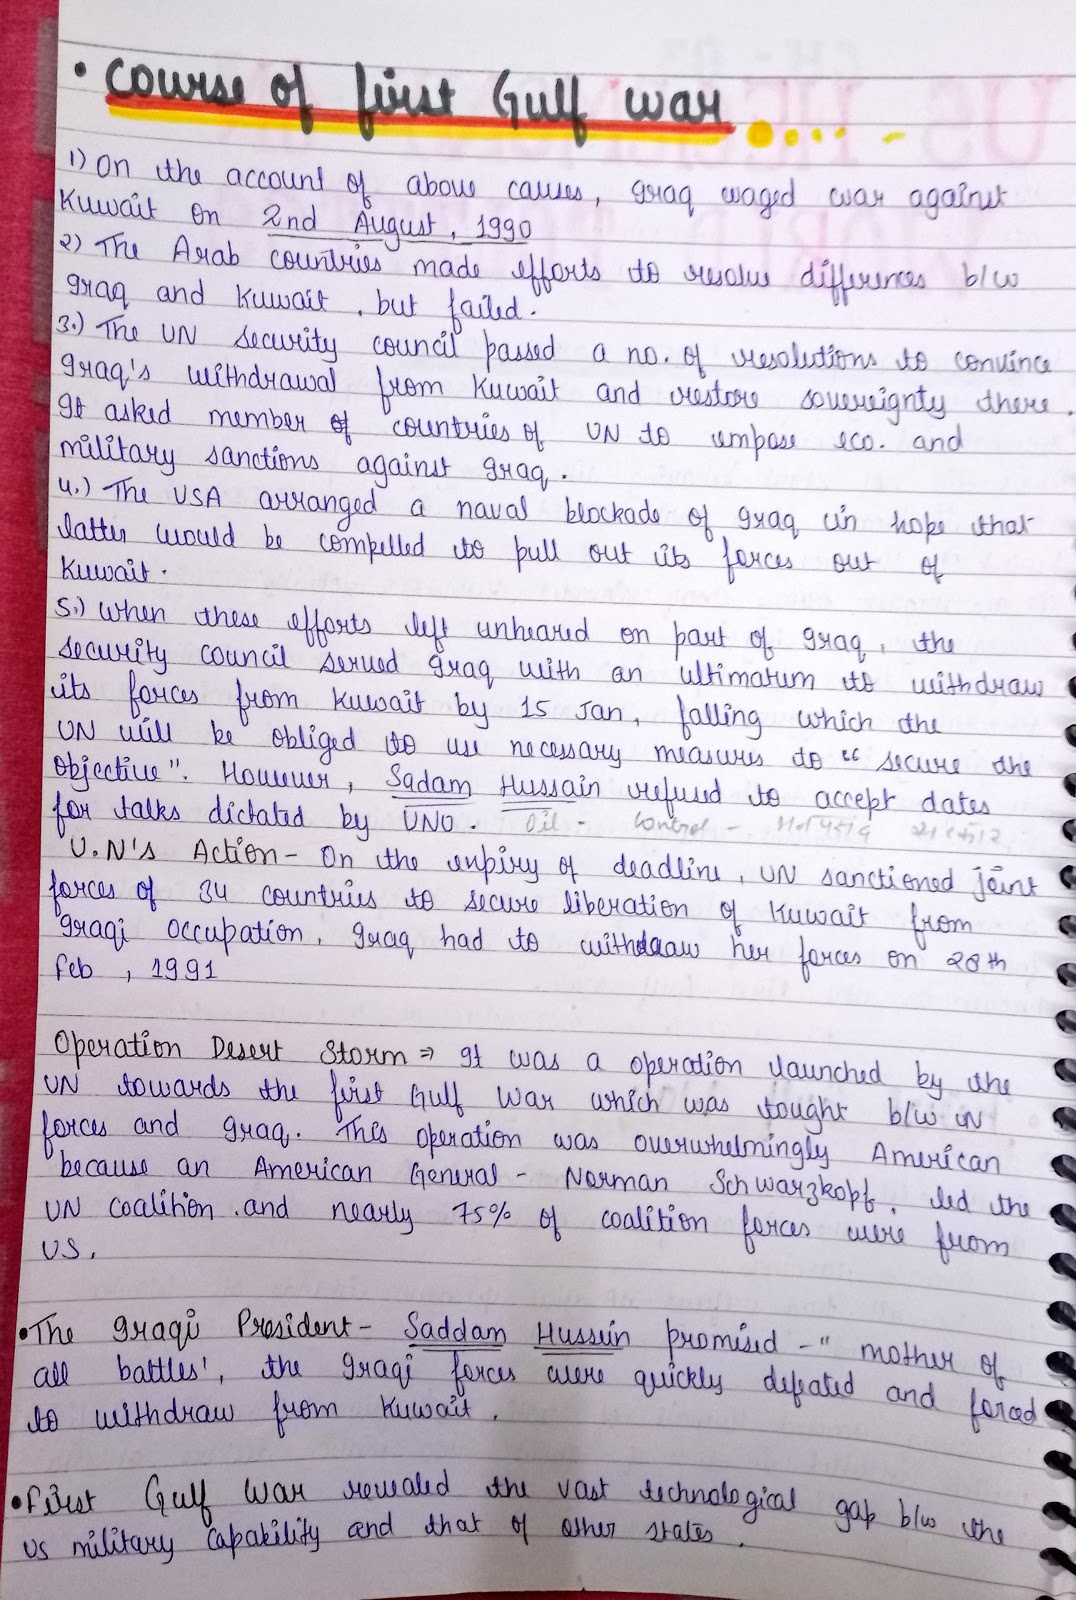 • Course of first Gulf war
1) On the account of above causes, Iraq waged war against
Kuwait on 2nd August, 1990
2) The Arab countries made efforts to resolve differences b/w
Iraq and Kuwait, but failed.
3.) The UN security council passed a no. of resolutions to convince
Iraq's withdrawal from Kuwait and restore sovereignty there.
It asked member of countries of UN to impose eco. and
military sanctions against Iraq.
4.) The USA arranged a naval blockade of Iraq in hope that
latter would be compelled to pull out its forces out of
Kuwait.
5.) When these efforts left unheared on part of Iraq, the
security council served Iraq with an ultimatum to withdraw
its forces from Kuwait by 15 Jan, falling which the
UN will be obliged to use necessary measures to "secure the
objective". However, Sadam Hussain refused to accept dates
for talks dictated by UNO. Oil - Control -
U.N's Action - On the expiry of deadline, UN sanctioned joint
forces of 34 countries to secure liberation of Kuwait from
Iraqi occupation, Iraq had to withdraw her forces on 28th
Feb, 1991
Operation Desert Storm ⇒ It was a operation launched by the
UN towards the first Gulf War which was tought b/w UN
forces and Iraq. This operation was overwhelmingly American
because an American General - Norman Schwarzkopf, led the
UN coalition and nearly 75% of coalition forces were from
US.
• The Iraqi President - Saddam Hussein promised - "mother of
all battles', the Iraqi forces were quickly defeated and forced
to withdraw from Kuwait.
• First Gulf War revealed the vast technological gap b/w the
US military capability and that of other states.